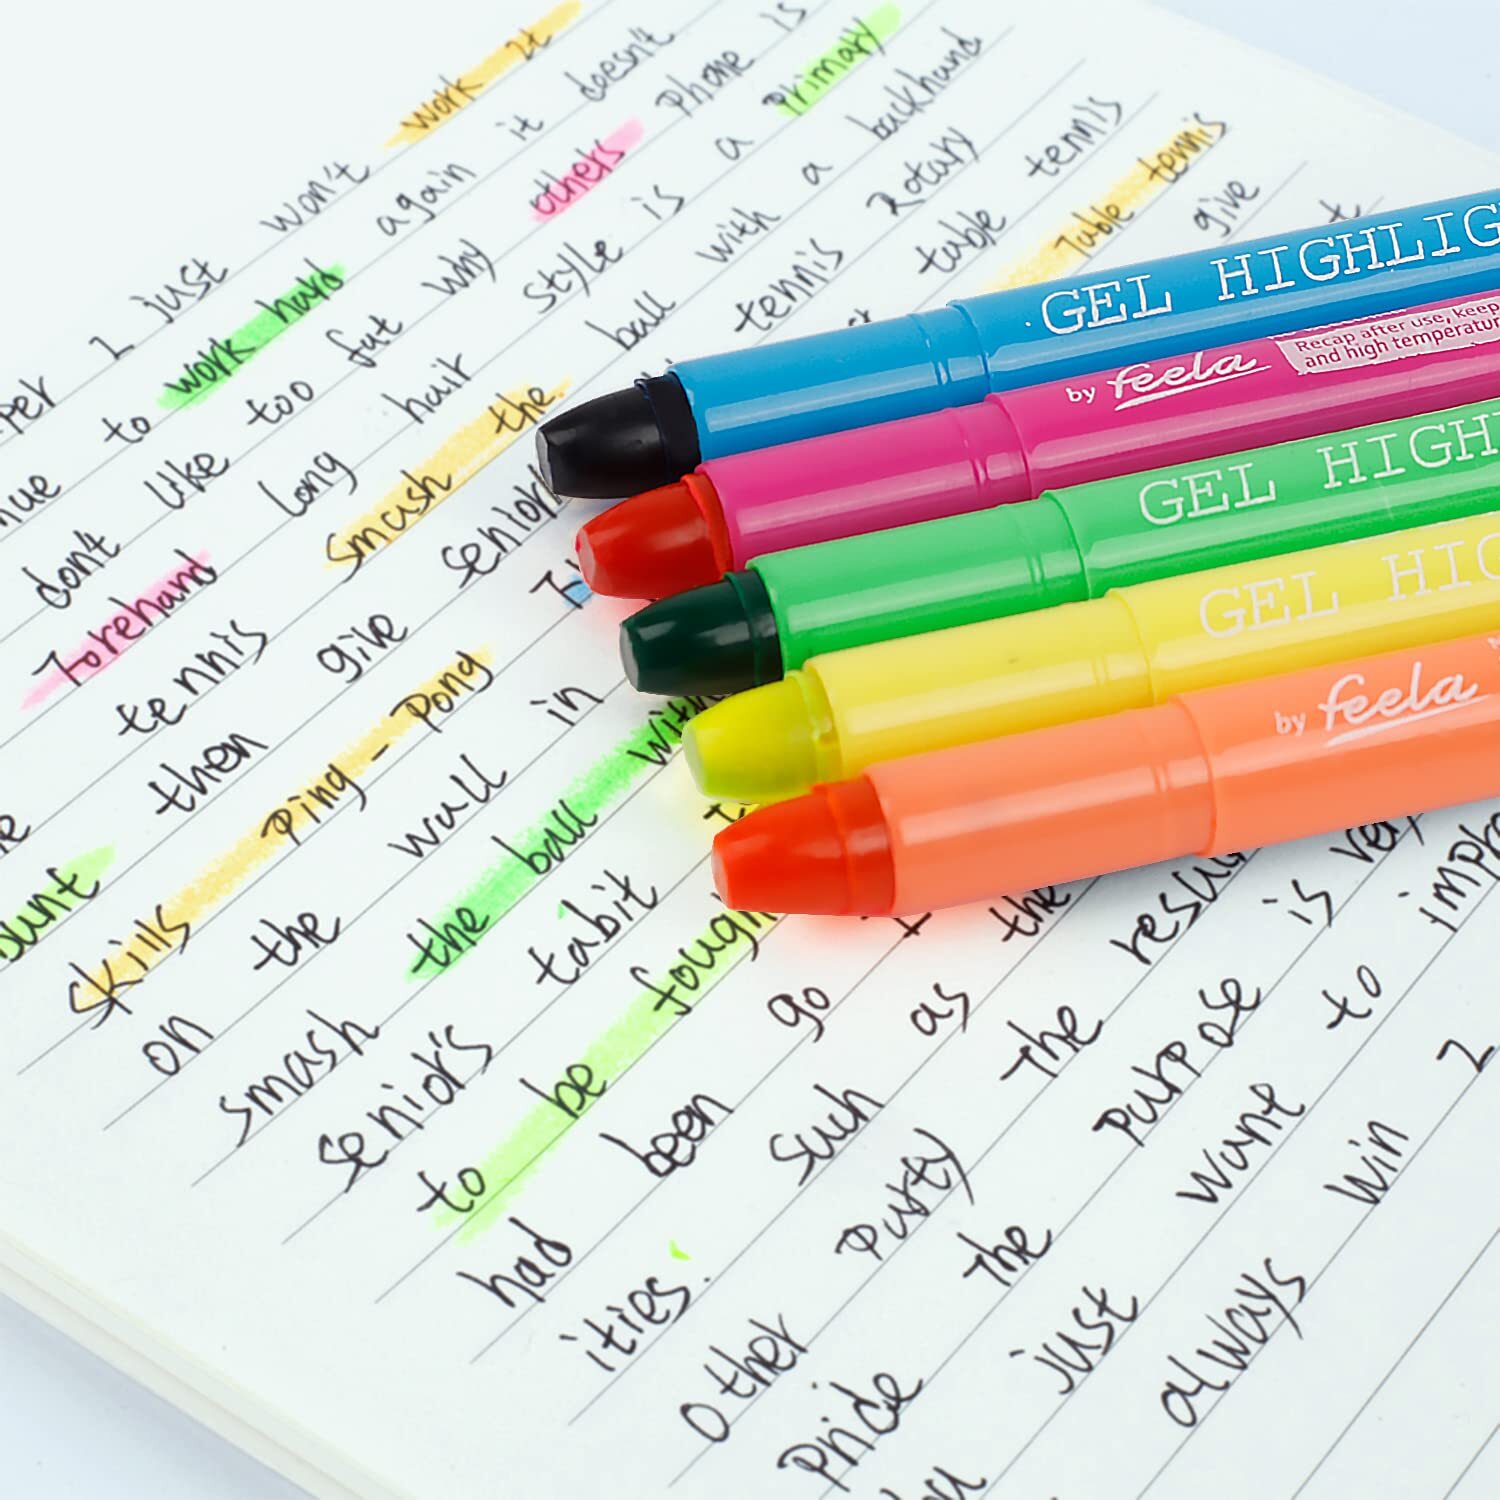 I just won't work It
to work hard again it doesn't
don't like too fut why others phone is
Forehand long hair style is a primary
tennis smash the ball with a backhand
then give senior tennis Rotary
skills ping-pong table tennis
on the wall in Table tennis
smash the ball with give
senior's tabit
to be fough
had been go
ities. such as the
other party The resul
pride the purpose is very
just want to impro
always win I
GEL HIGHLIG
by feela Recap after use, keep
and high temperatur
GEL HIGH
GEL HIG
by feela